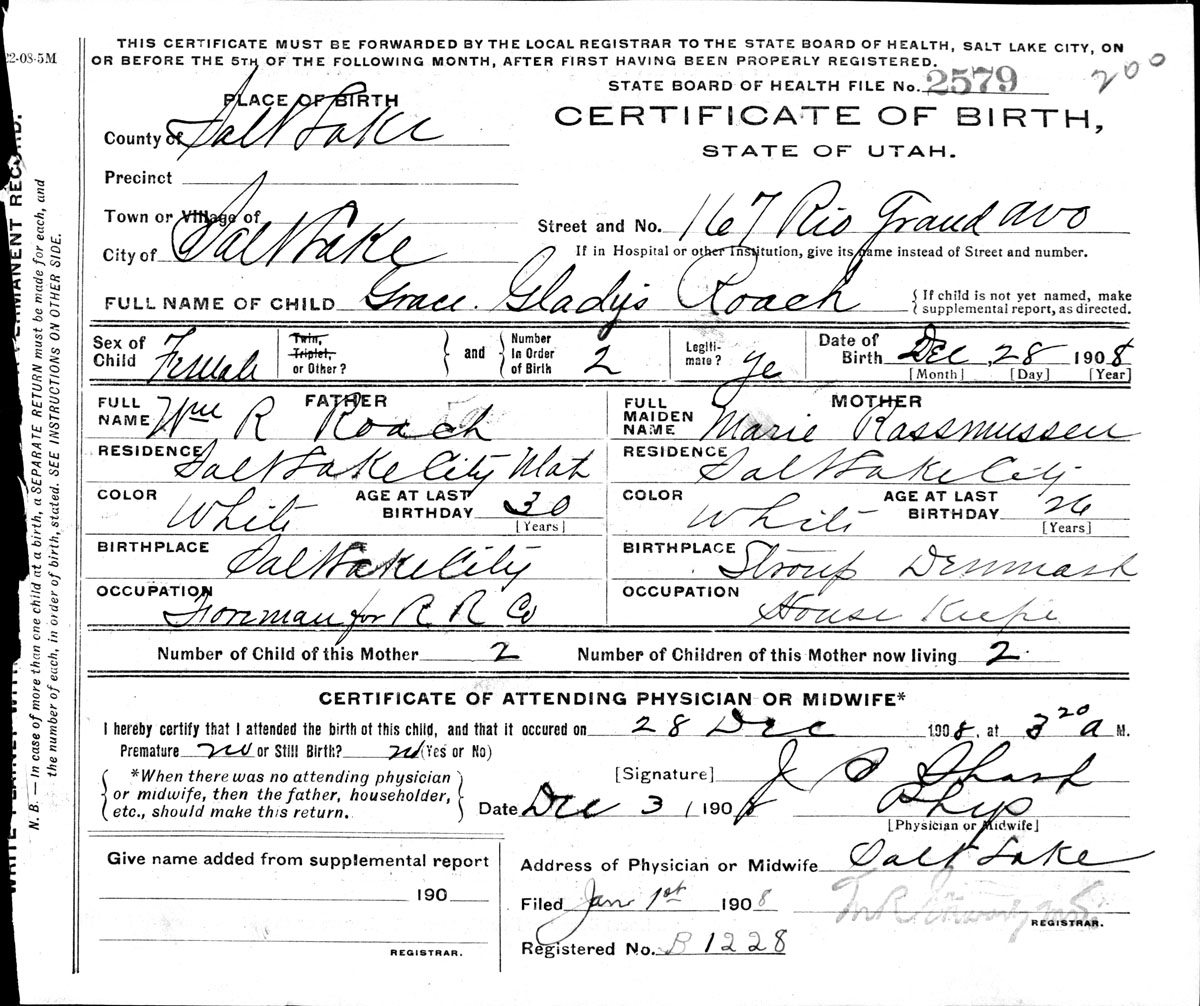 22-08-5M
THIS CERTIFICATE MUST BE FORWARDED BY THE LOCAL REGISTRAR TO THE STATE BOARD OF HEALTH, SALT LAKE CITY, ON
OR BEFORE THE 5TH OF THE FOLLOWING MONTH, AFTER FIRST HAVING BEEN PROPERLY REGISTERED.
200
STATE BOARD OF HEALTH FILE No. 2579
CERTIFICATE OF BIRTH,
STATE OF UTAH.
PLACE OF BIRTH
County of Salt Lake
Precinct
Town or Village of
City of Salt Lake
Street and No. 167 Rio Grand ave
If in Hospital or other Institution, give its name instead of Street and number.
FULL NAME OF CHILD Grace. Gladys Roach
{ If child is not yet named, make
supplemental report, as directed.
Sex of Child Female
Twin, Triplet, or Other?
} and {
Number In Order of Birth 2
Legitimate? ye
Date of Birth Dec, 28 1908
[Month] [Day] [Year]
FATHER
FULL NAME Wm R Roach
RESIDENCE Salt Lake City Utah
COLOR White
AGE AT LAST BIRTHDAY 30
[Years]
BIRTHPLACE Salt Lake City
OCCUPATION Forman for R R Co
MOTHER
FULL MAIDEN NAME Marie Rassmussen
RESIDENCE Salt Lake City
COLOR White
AGE AT LAST BIRTHDAY 26
[Years]
BIRTHPLACE Denmark
OCCUPATION House Keepe
Number of Child of this Mother 2 Number of Children of this Mother now living 2.
CERTIFICATE OF ATTENDING PHYSICIAN OR MIDWIFE*
I hereby certify that I attended the birth of this child, and that it occured on 28 Dec 1908, at 3 20 a M.
Premature no or Still Birth? no (Yes or No)
{ *When there was no attending physician
or midwife, then the father, householder,
etc., should make this return. }
[Signature] J S Sharp
Date Dec 31 1908 Phys
[Physician or Midwife]
Give name added from supplemental report
190
REGISTRAR.
Address of Physician or Midwife Salt Lake
Filed Jan 1st 1908
REGISTRAR.
Registered No. B 1228
PERMANENT RECORD.
N. B. — In case of more than one child at a birth, a SEPARATE RETURN must be made for each, and
the number of each, in order of birth, stated. SEE INSTRUCTIONS ON OTHER SIDE.